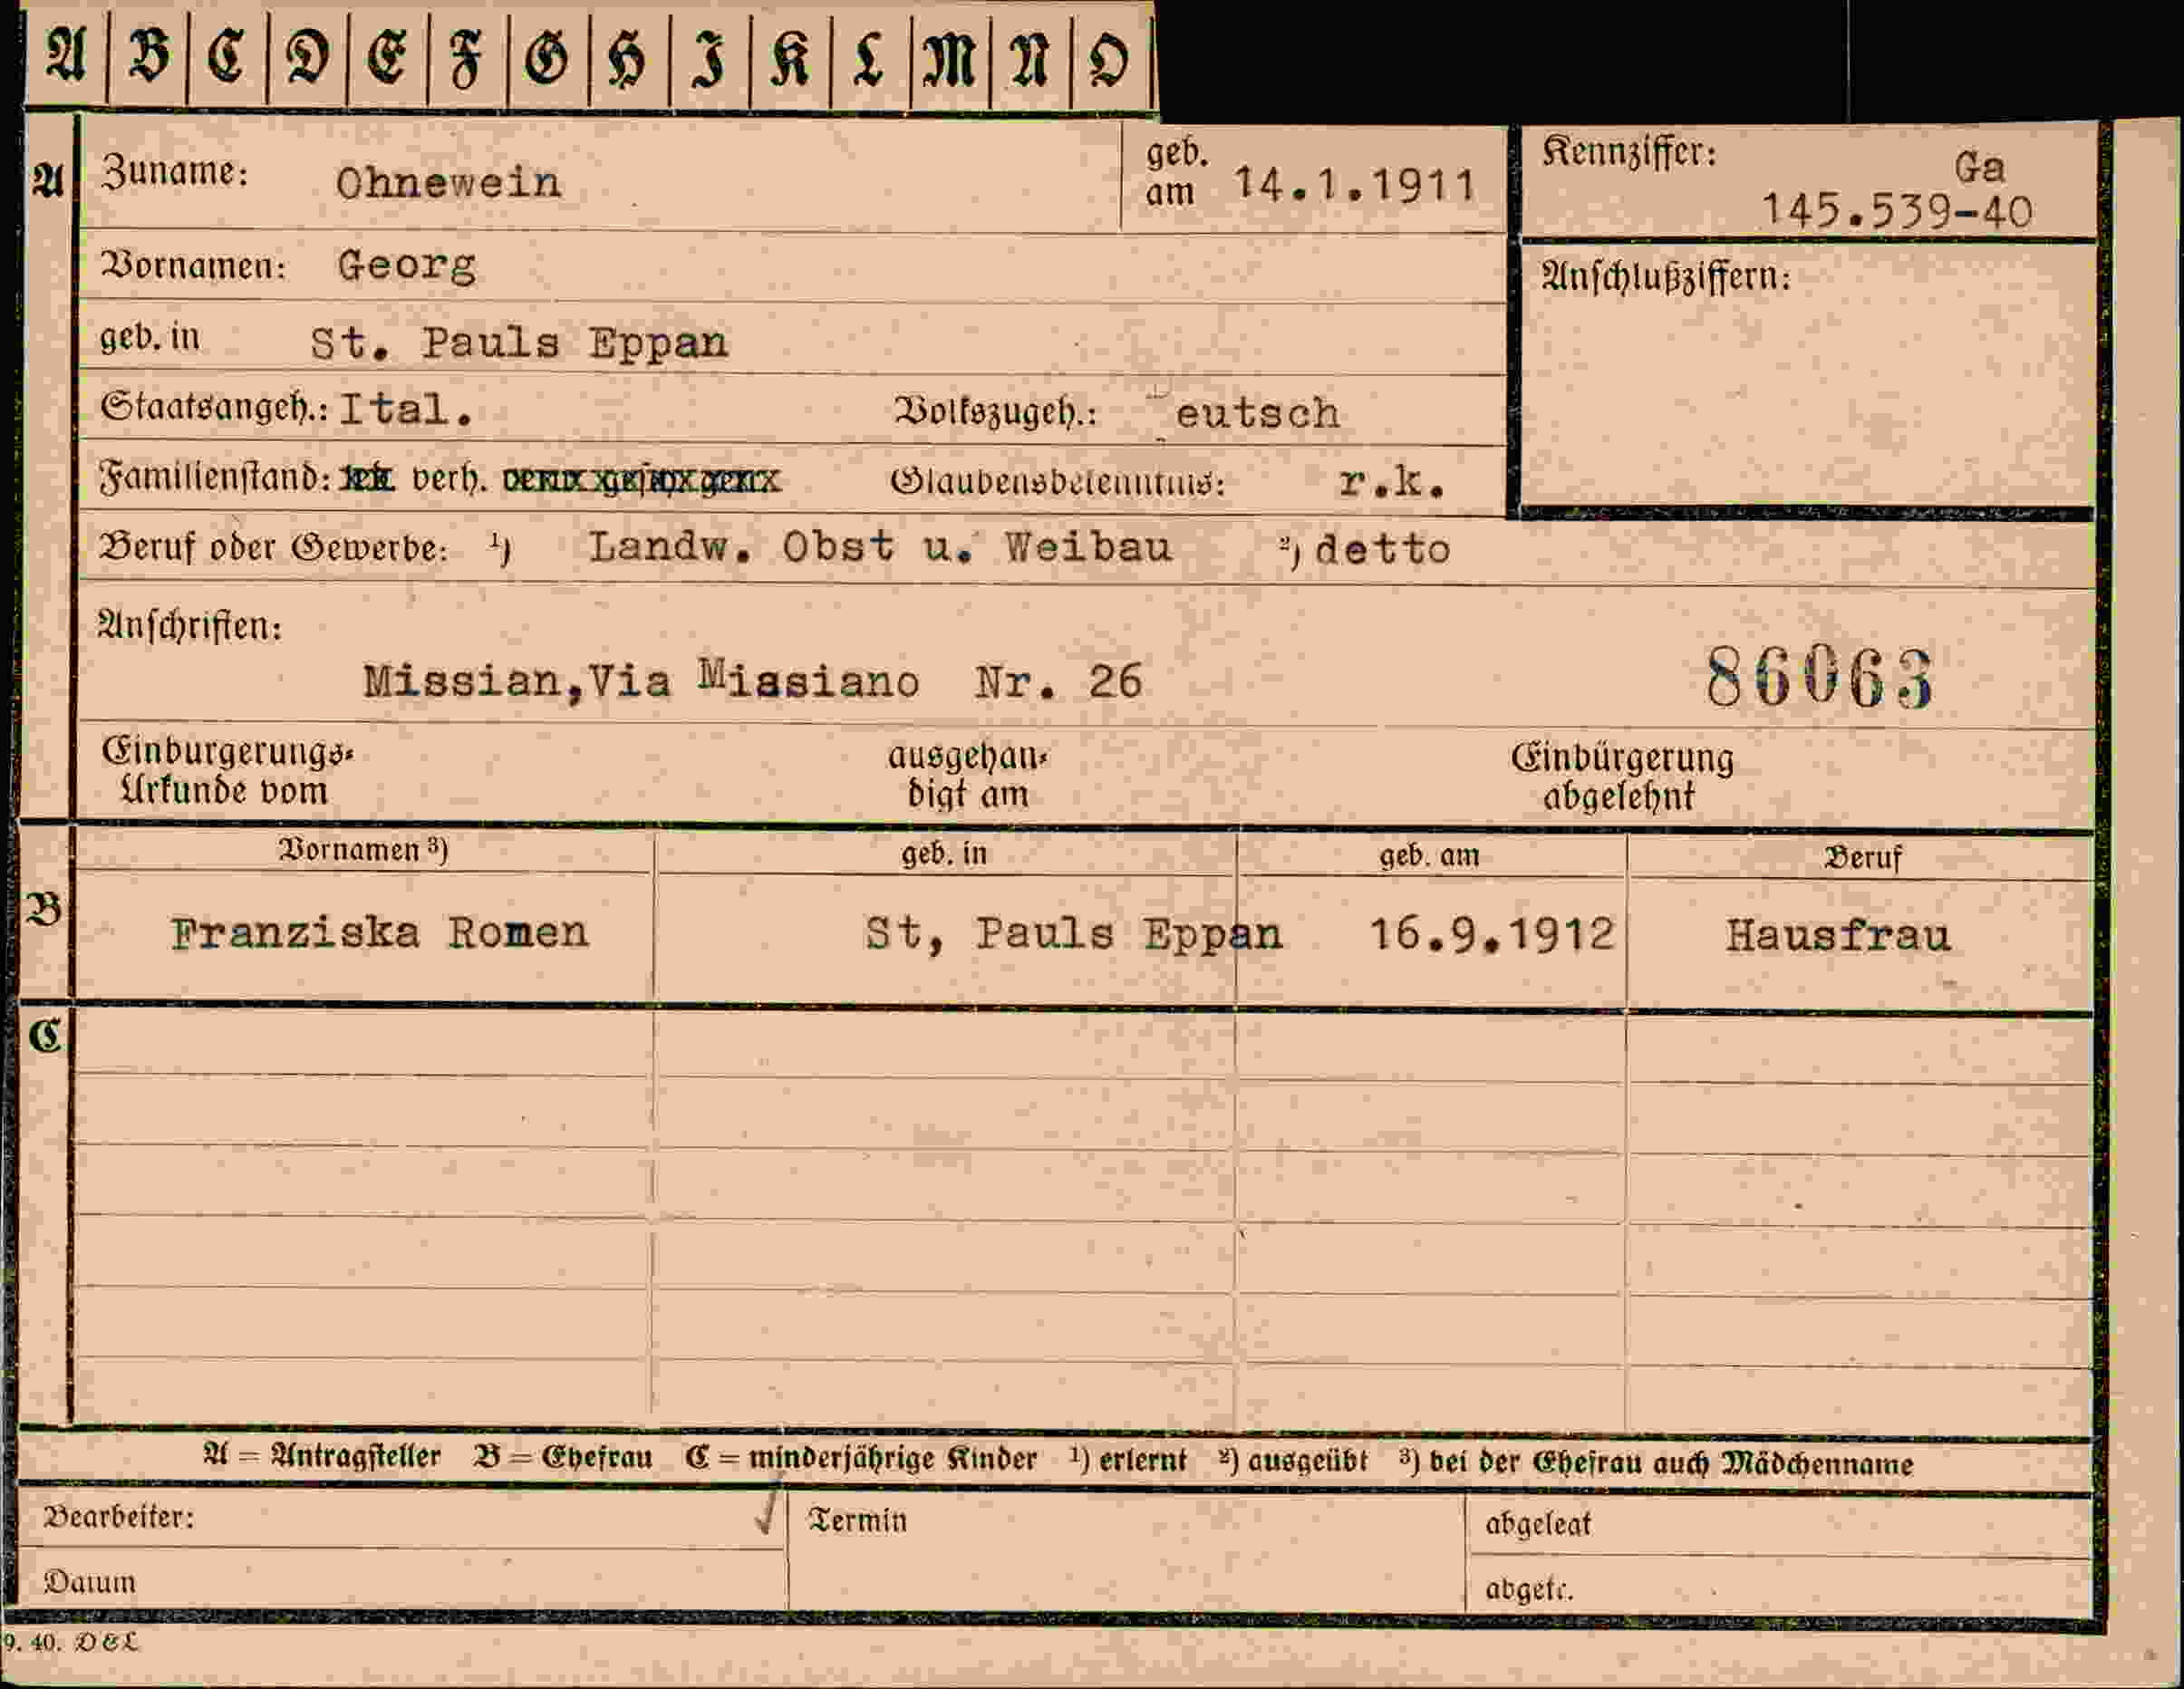 A B C D E F G H I K L M N O
A Zuname: Ohnewein geb. am 14.1.1911 Kennziffer: Ga 145.539-40
Vornamen: Georg Anschlußziffern:
geb. in St. Pauls Eppan
Staatsangeh.: Ital. Volkszugeh.: Deutsch
Familienstand: verh. Glaubensbekenntnis: r.k.
Beruf oder Gewerbe: ¹) Landw. Obst u. Weibau ²) detto
Anschriften:
Missian,Via Missiano Nr. 26 86063
Einbürgerungs- ausgehän- Einbürgerung
Urkunde vom digt am abgelehnt
Vornamen ³) geb. in geb. am Beruf
B Franziska Romen St, Pauls Eppan 16.9.1912 Hausfrau
C
A = Antragsteller B = Ehefrau C = minderjährige Kinder ¹) erlernt ²) ausgeübt ³) bei der Ehefrau auch Mädchenname
Bearbeiter: Termin abgelegt
Datum abgetr.
9. 40. D & L